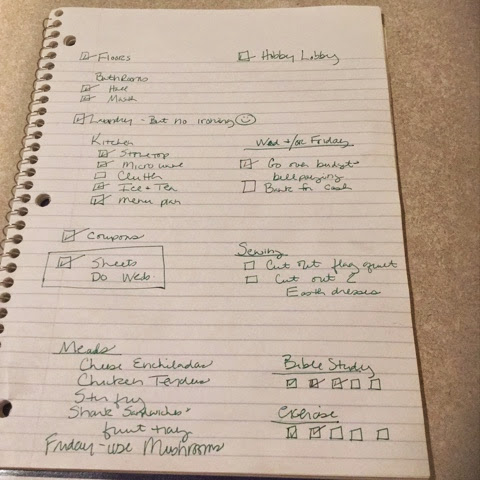 Floors
Bathrooms
Hall
Laundry - But no ironing
Kitchen
Stovetop
Microwave
Clutter
Ice + Tea
Menu plan
Coupons
Sheets
Do Web
Meals
Cheese Enchiladas
Chicken Tenders
Stir fry
Shank Sandwiches
fruit tray
Friday - use Mushrooms
Hobby Lobby
Wed +/or Friday
Go over budget
bill paying
Bank for cash
Sewing
Cut out flag quilt
Cut out 2
Easter dresses
Bible Study
Exercise